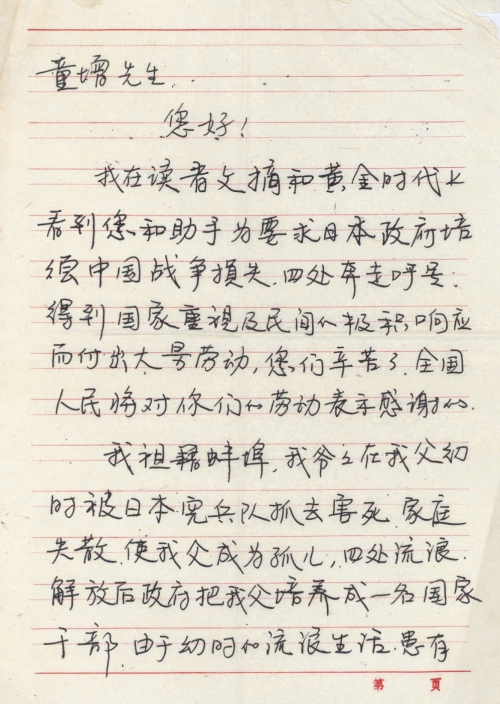 童增先生.
您好！
我在读者文摘和黄金时代上
看到您和助手为要求日本政府培
偿中国战争损失.四处奔走呼号.
得到国家重视及民间的极积响应
而付出大量劳动,您们辛苦了.全国
人民将对你们的劳动表示感谢的.
我祖籍蚌埠.我爷爷在我父幼
时被日本宪兵队抓去害死.家庭
失散.使我父成为孤儿,四处流浪.
解放后政府把我父培养成一名国家
干部.由于幼时的流浪生活.患有
第 页